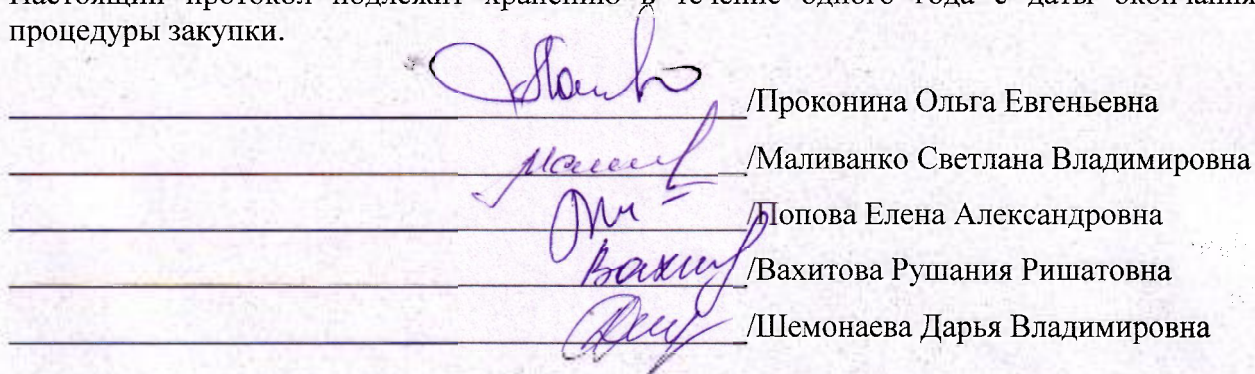 Настоящий протокол подлежит хранению в течение одного года с даты окончания
процедуры закупки.
/Проконина Ольга Евгеньевна
/Маливанко Светлана Владимировна
/Попова Елена Александровна
/Вахитова Рушания Ришатовна
/Шемонаева Дарья Владимировна